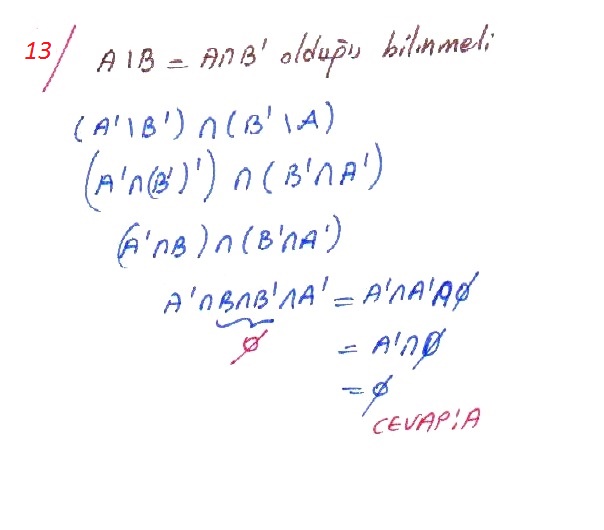 13/ A\B = A∩B' olduğu bilinmeli
(A'\B') ∩ (B'\A)
(A'∩(B')') ∩ (B'∩A')
(A'∩B) ∩ (B'∩A')
A'∩B∩B'∩A' = A'∩A'∩∅
∅ = A'∩∅
= ∅
CEVAP: A